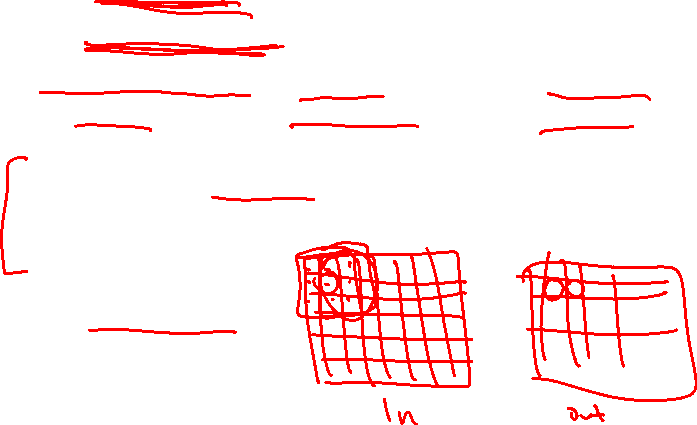 In
out